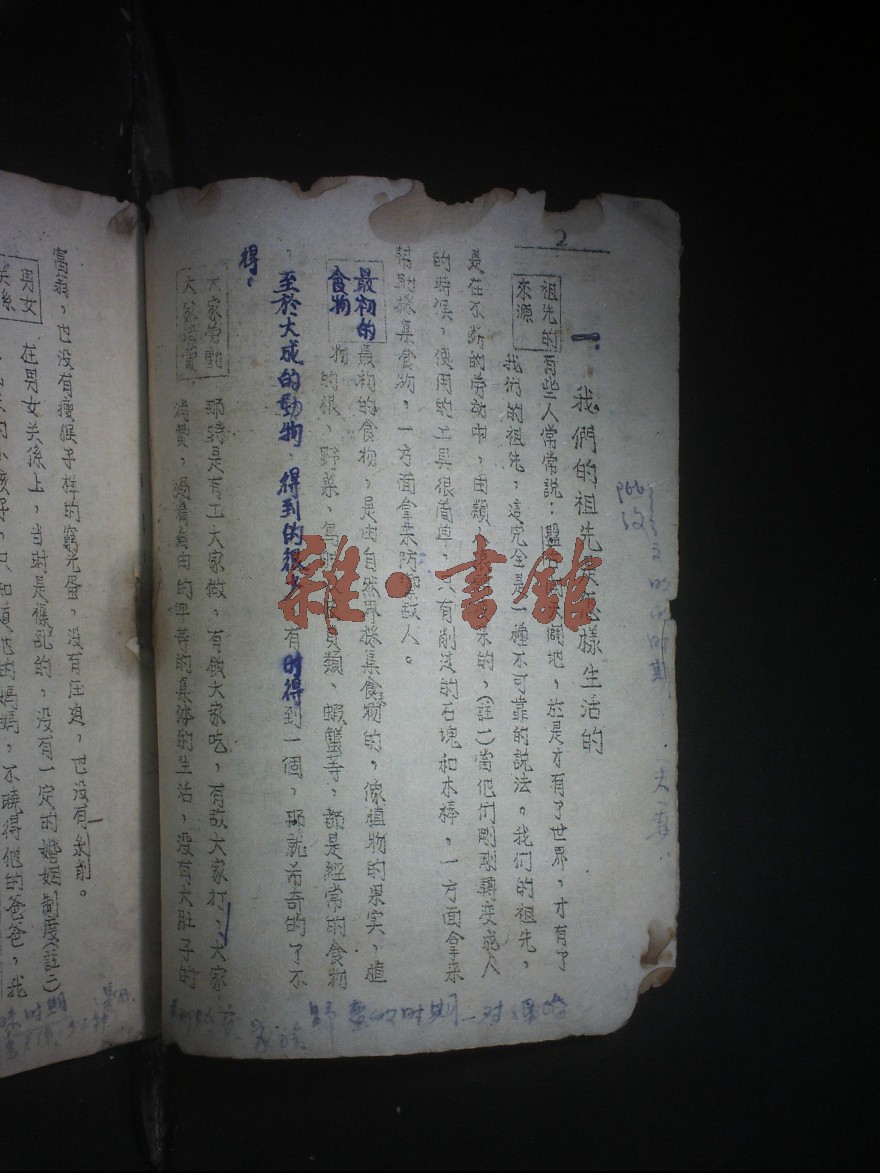 2
一、我們的祖先是怎樣生活的
祖先的
來源
有些人常常說：盤古開天闢地，於是才有了世界，才有了
我们的祖先，這完全是一種不可靠的說法。我們的祖先，
是在不断的劳动中，由類
的，(註一)當他们剛剛轉变成人
的時候，使用的工具很簡單，只有削造的石塊和木棒，一方面拿來
幫助採集食物，一方面拿來防禦敌人。
最初的
食物
最初的食物，是由自然界採集食物的，像植物的果实，植
物的根、野菜、鳥
貝類、蝦蟹等，都是經常的食物
，至於大成的動物，得到的很少
有時得到一個，那就希奇的了不
得。
大家劳動
大家消費
那時是有工大家做，有飯大家吃，有敌大家打，大家
消費，過着自由的平等的集体的生活，没有大肚子的
富翁，也没有瘦猴子样的窮光蛋，没有压迫，也没有剝削。
男女
关係
在男女关係上，当時是僕乱的，没有一定的婚姻制度(註二)
孩子，只知道他的媽媽，不曉得他的爸爸，我
野蛮的时期
时期
雜·書館